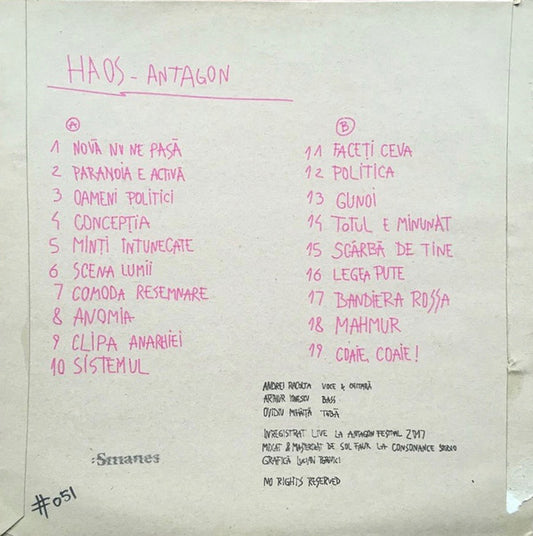 HAOS - ANTAGON
A
1 NOUĂ NU NE PASĂ
2 PARANOIA E ACTIVĂ
3 OAMENI POLITICI
4 CONCEPȚIA
5 MINȚI ÎNTUNECATE
6 SCENA LUMII
7 COMODA RESEMNARE
8 ANOMIA
9 CLIPA ANARHIEI
10 SISTEMUL
B
11 FACEȚI CEVA
12 POLITICA
13 GUNOI
14 TOTUL E MINUNAT
15 SCÂRBĂ DE TINE
16 LEGEA PUTE
17 BANDIERA ROSSA
18 MAHMUR
19 COAIE, COAIE!
ANDREI VOCE & CHITARĂ
ARTHUR IONESCU BASS
OVIDIU TOBĂ
ÎNREGISTRAT LIVE LA ANTAGON FESTIVAL 2017
MIXAT & MASTERIZAT DE SOL FAUR LA CONSONANCE STUDIO
GRAFICĂ LUCIAN
NO RIGHTS RESERVED
:Smanes
#051